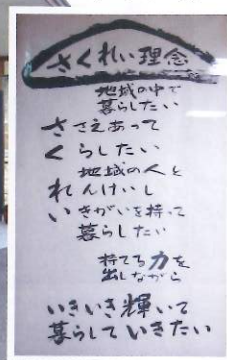 さくれい理念
地域の中で
暮らしたい
ささえあって
くらしたい
地域の人と
れんけいし
いきがいを持って
暮らしたい
持てる力を
出しながら
いきいき輝いて
暮らしていきたい